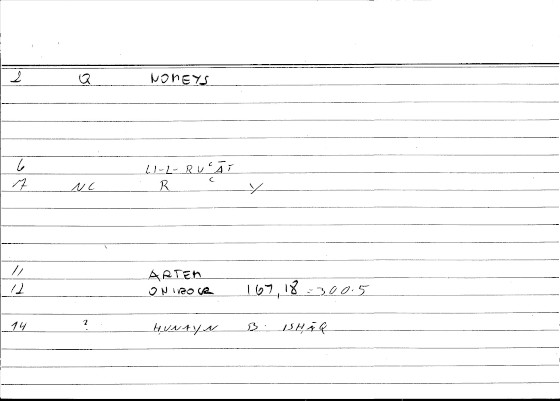 2 Q NOMEYS
6 LI-L-RUʿĀT
7 NC R ʿ Y
11 ARTEM
12 ONIROCR 167,18 = 300.5
14 ? HUNAYN B. ISHĀQ